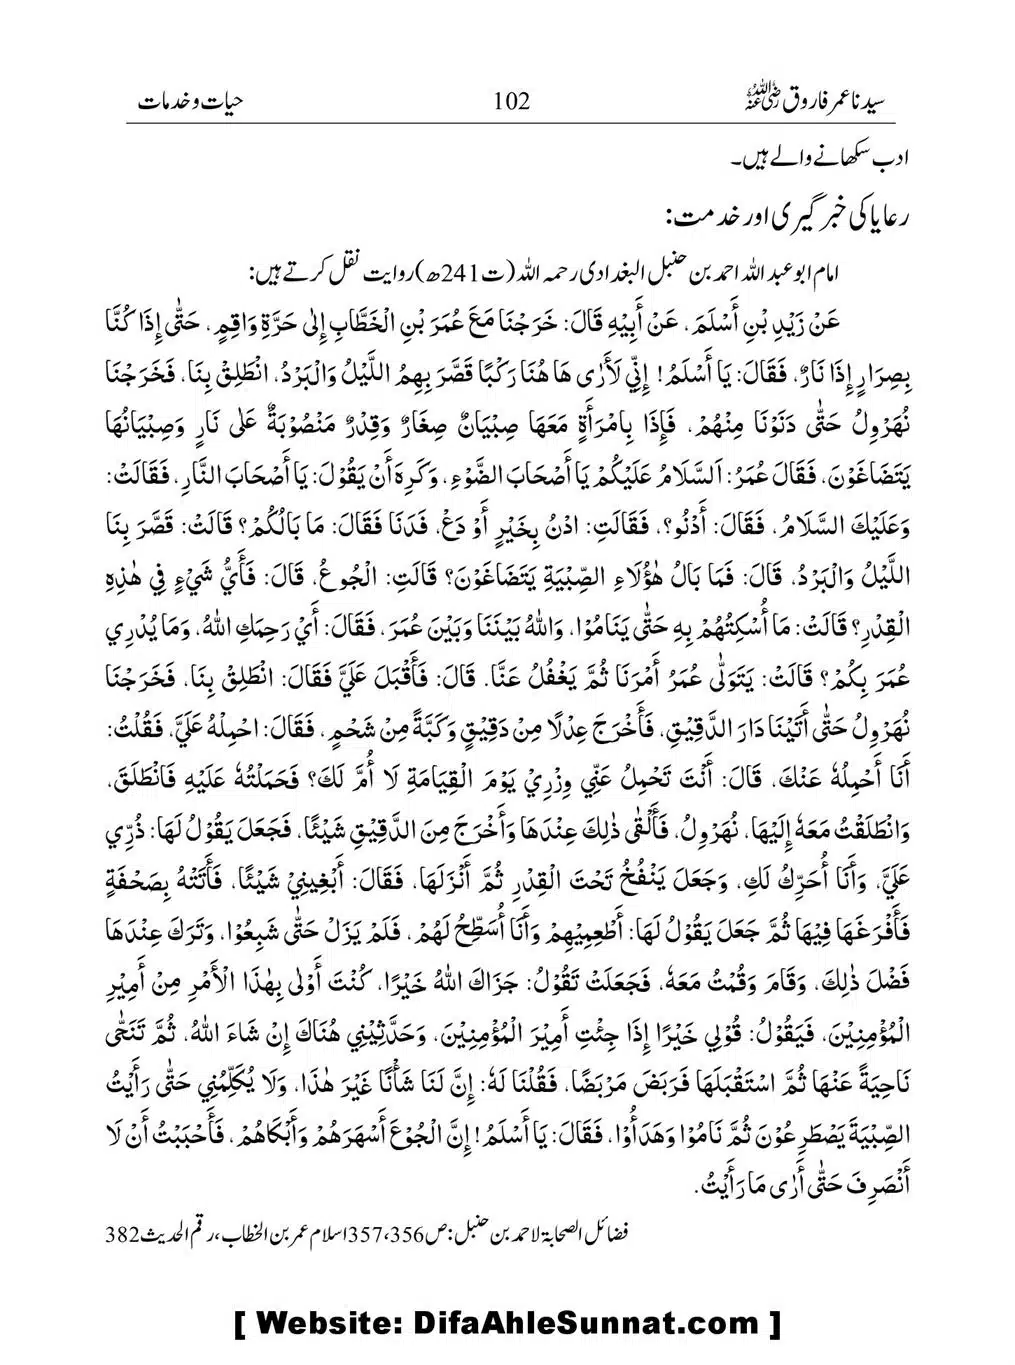 سیدنا عمر فاروق رضی اللہ عنہ 102 حیات و خدمات
ادب سکھانے والے ہیں۔
رعایا کی خبر گیری اور خدمت:
امام ابو عبد اللہ احمد بن حنبل البغدادی رحمہ اللہ (ت241ھ) روایت نقل کرتے ہیں:
عَنْ زَيْدِ بْنِ أَسْلَمَ، عَنْ أَبِيْهِ قَالَ: خَرَجْنَا مَعَ عُمَرَ بْنِ الْخَطَّابِ إِلىٰ حَرَّةِ وَاقِمٍ، حَتّٰى إِذَا كُنَّا
بِصِرَارٍ إِذَا نَارٌ، فَقَالَ: يَا أَسْلَمُ! إِنِّي لَأَرٰى هَا هُنَا رَكْبًا قَصَّرَ بِهِمُ اللَّيْلُ وَالْبَرْدُ، انْطَلِقْ بِنَا، فَخَرَجْنَا
نُهَرْوِلُ حَتّٰى دَنَوْنَا مِنْهُمْ، فَإِذَا بِامْرَأَةٍ مَعَهَا صِبْيَانٌ صِغَارٌ وَقِدْرٌ مَنْصُوْبَةٌ عَلىٰ نَارٍ وَصِبْيَانُهَا
يَتَضَاغَوْنَ، فَقَالَ عُمَرُ: اَلسَّلَامُ عَلَيْكُمْ يَا أَصْحَابَ الضَّوْءِ، وَكَرِهَ أَنْ يَقُوْلَ: يَا أَصْحَابَ النَّارِ، فَقَالَتْ:
وَعَلَيْكَ السَّلَامُ، فَقَالَ: أَدْنُو؟، فَقَالَتِ: ادْنُ بِخَيْرٍ أَوْ دَعْ، فَدَنَا فَقَالَ: مَا بَالُكُمْ؟ قَالَتْ: قَصَّرَ بِنَا
اللَّيْلُ وَالْبَرْدُ، قَالَ: فَمَا بَالُ هٰؤُلَاءِ الصِّبْيَةِ يَتَضَاغَوْنَ؟ قَالَتِ: الْجُوعُ، قَالَ: فَأَيُّ شَيْءٍ فِي هٰذِهِ
الْقِدْرِ؟ قَالَتْ: مَا أُسْكِتُهُمْ بِهِ حَتّٰى يَنَامُوْا، وَاللهُ بَيْنَنَا وَبَيْنَ عُمَرَ، فَقَالَ: أَيْ رَحِمَكِ اللهُ، وَمَا يُدْرِي
عُمَرَ بِكُمْ؟ قَالَتْ: يَتَوَلّٰى عُمَرُ أَمْرَنَا ثُمَّ يَغْفُلُ عَنَّا، قَالَ: فَأَقْبَلَ عَلَيَّ فَقَالَ: انْطَلِقْ بِنَا، فَخَرَجْنَا
نُهَرْوِلُ حَتّٰى أَتَيْنَا دَارَ الدَّقِيْقِ، فَأَخْرَجَ عِدْلًا مِنْ دَقِيْقٍ وَكَبَّةً مِنْ شَحْمٍ، فَقَالَ: احْمِلْهُ عَلَيَّ، فَقُلْتُ:
أَنَا أَحْمِلُهُ عَنْكَ، قَالَ: أَنْتَ تَحْمِلُ عَنِّي وِزْرِيْ يَوْمَ الْقِيَامَةِ لَا أُمَّ لَكَ؟ فَحَمَلْتُهُ عَلَيْهِ فَانْطَلَقَ،
وَانْطَلَقْتُ مَعَهُ إِلَيْهَا، نُهَرْوِلُ، فَأَلْقٰى ذٰلِكَ عِنْدَهَا وَأَخْرَجَ مِنَ الدَّقِيْقِ شَيْئًا، فَجَعَلَ يَقُوْلُ لَهَا: ذُرِّي
عَلَيَّ، وَأَنَا أُحَرِّكُ لَكِ، وَجَعَلَ يَنْفُخُ تَحْتَ الْقِدْرِ ثُمَّ أَنْزَلَهَا، فَقَالَ: أَبْغِيْنِيْ شَيْئًا، فَأَتَتْهُ بِصَحْفَةٍ
فَأَفْرَغَهَا فِيْهَا ثُمَّ جَعَلَ يَقُوْلُ لَهَا: أَطْعِمِيْهِمْ وَأَنَا أُسَطِّحُ لَهُمْ، فَلَمْ يَزَلْ حَتّٰى شَبِعُوْا، وَتَرَكَ عِنْدَهَا
فَضْلَ ذٰلِكَ، وَقَامَ وَقُمْتُ مَعَهُ، فَجَعَلَتْ تَقُوْلُ: جَزَاكَ اللهُ خَيْرًا، كُنْتَ أَوْلىٰ بِهٰذَا الْأَمْرِ مِنْ أَمِيْرِ
الْمُؤْمِنِيْنَ، فَيَقُوْلُ: قُوْلِي خَيْرًا إِذَا جِئْتِ أَمِيْرَ الْمُؤْمِنِيْنَ، وَحَدِّثِيْنِي هُنَاكَ إِنْ شَاءَ اللهُ، ثُمَّ تَنَحّٰى
نَاحِيَةً عَنْهَا ثُمَّ اسْتَقْبَلَهَا فَرَبَضَ مَرْبَضًا، فَقُلْنَا لَهُ: إِنَّ لَنَا شَأْنًا غَيْرَ هٰذَا، وَلَا يُكَلِّمُنِي حَتّٰى رَأَيْتُ
الصِّبْيَةَ يَصْطَرِعُوْنَ ثُمَّ نَامُوْا وَهَدَأُوْا، فَقَالَ: يَا أَسْلَمُ! إِنَّ الْجُوْعَ أَسْهَرَهُمْ وَأَبْكَاهُمْ، فَأَحْبَبْتُ أَنْ لَا
أَنْصَرِفَ حَتّٰى أَرٰى مَا رَأَيْتُ.
فضائل الصحابۃ لاحمد بن حنبل: ص356،357 اسلام عمر بن الخطاب، رقم الحدیث 382
[ Website: DifaAhleSunnat.com ]